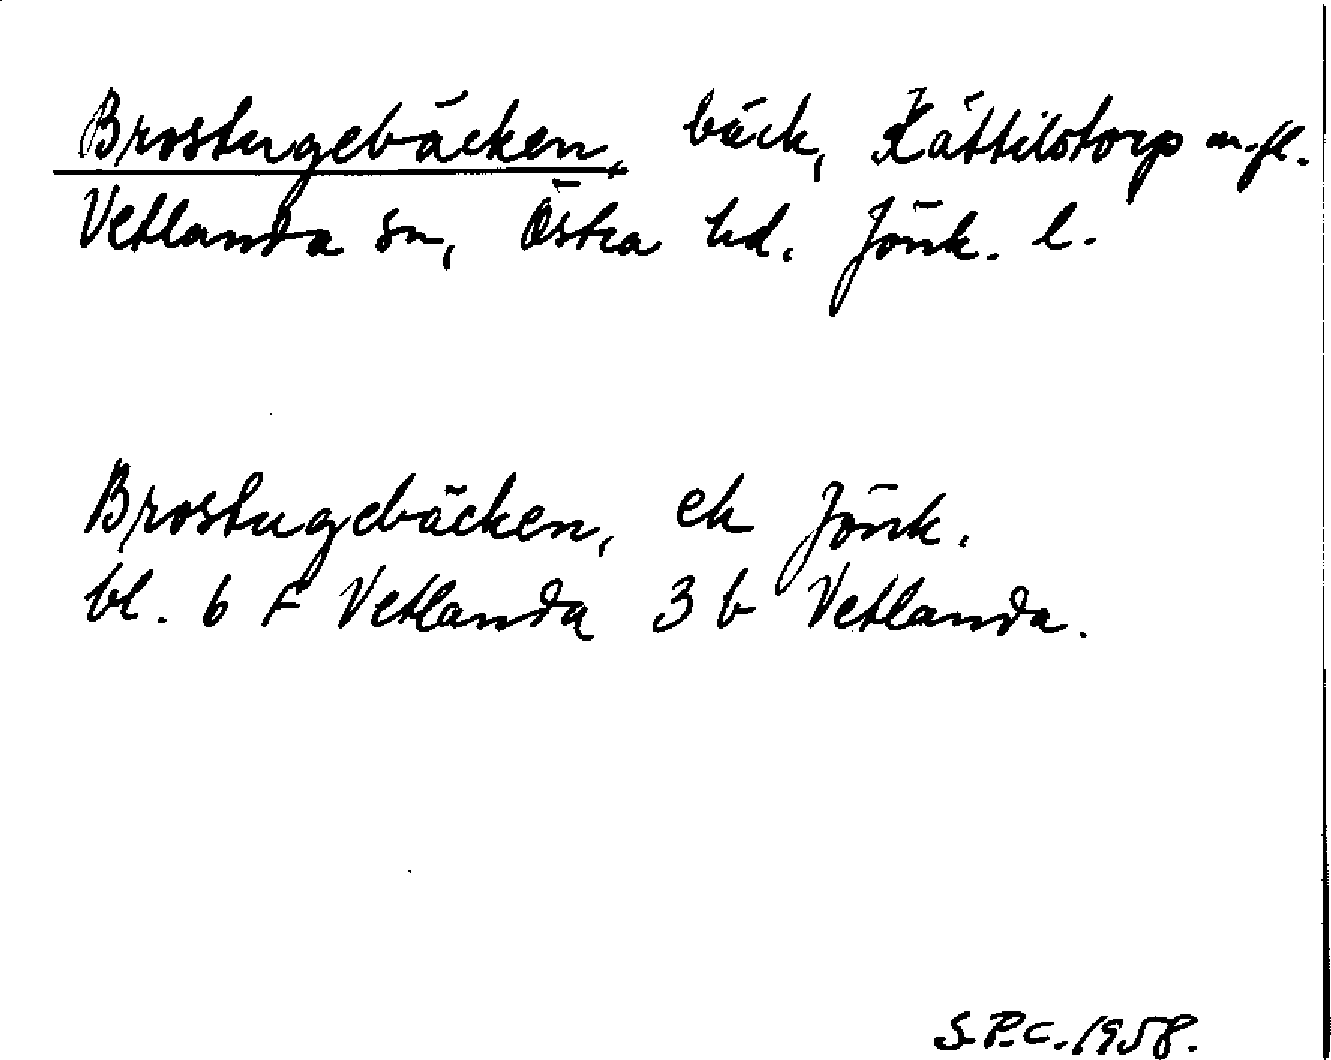 Brostugebäcken, bäck, Kättilstorp m.fl.
Vetlanda sn, Östra hd. Jönk. l.
Brostugebäcken, ek Jönk.
bl. 6 F Vetlanda 3 b Vetlanda.
S.P.C. 1958.